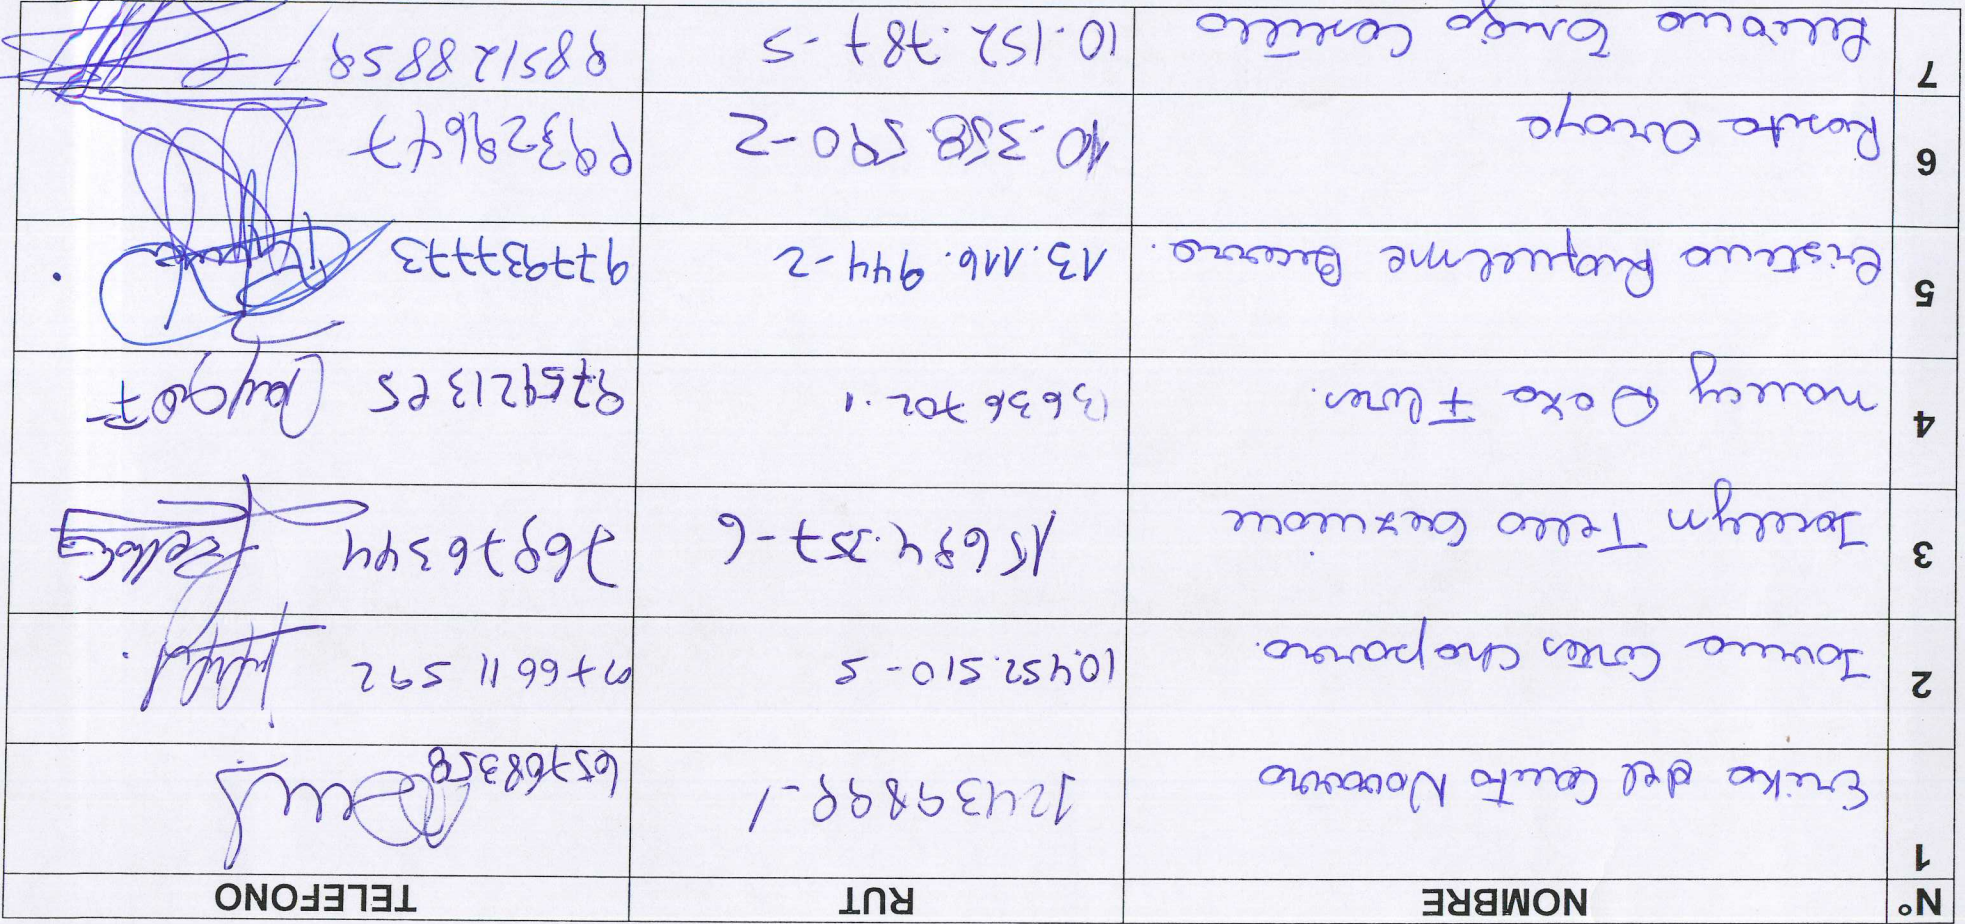 N° NOMBRE RUT TELEFONO
1 Erika del Canto Navarro 12439899-1 65768358
2 Cortés Chaparro. 10.452.510-5 976611592
3 Jocelyn Tello 15684.357-6 76876344
4 Nancy Soto Flores. 13636702-1
5 Cristina Riquelme Becerra. 13.116.944-2 977937773
6 Rosita Araya 10.358.590-2 993289647
7 Castillo 10.152.787-5 985128858